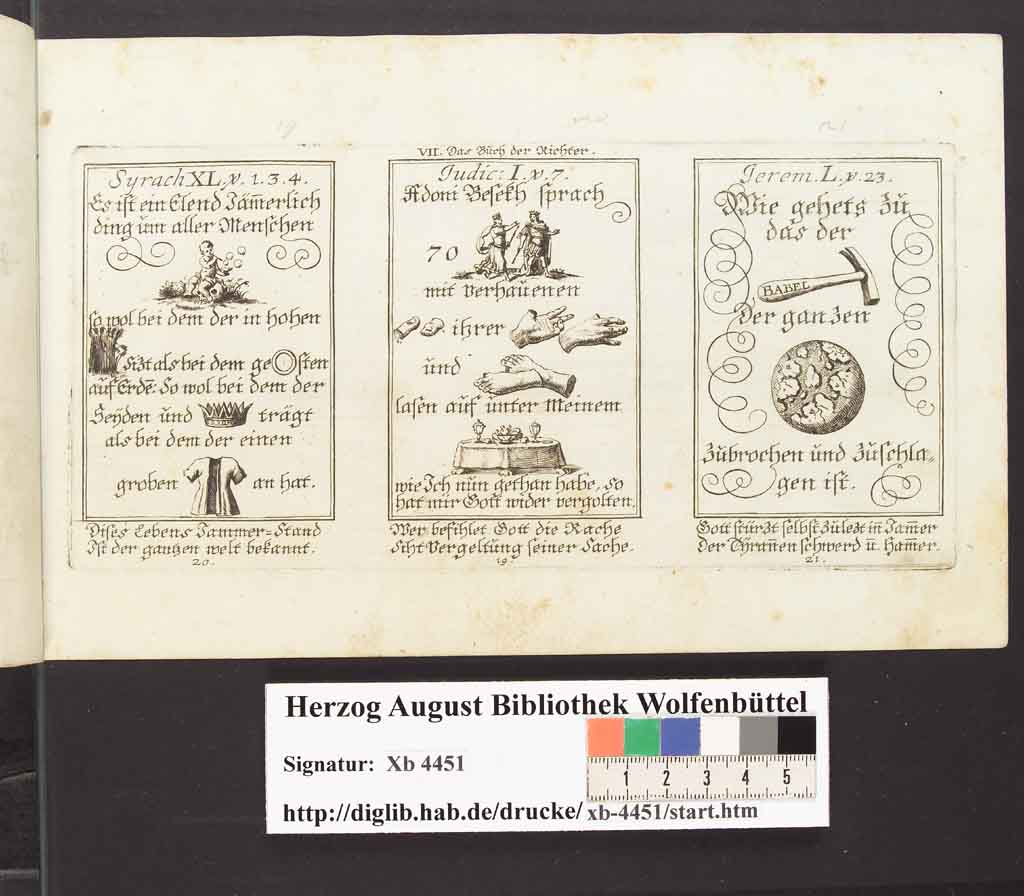 VII. Das Buch der Richter.
Syrach XL. v. 1. 3. 4.
Es ist ein Elend Jam̄erlich
ding um aller Menschen
so wol bei dem der in hohen
Sizt als bei dem ge sten
auf Erdē: So wol bei dem der
Seyden und trägt
als bei dem der einen
groben an hat.
Dises Lebens Jammer=Stand
Ist der gantzen welt bekannt.
20.
Judic: I. v. 7.
Adoni Besekh sprach
70
mit verhauenen
ihrer
und
lasen auf unter Meinem
wie Ich nun gethan habe, so
hat mir Gott wider vergolten.
Wer befihlet Gott die Rache
Seht Vergeltung seiner Sache.
19.
Jerem. L. v. 23.
Wie gehets zu
das der
BABEL
Der ganzen
Zubrochen und Zuschla=
gen ist.
Gott stürzt selbst zulezt in Jam̄er
der Tÿran̄en schwerd ū. Ham̄er.
21.
Herzog August Bibliothek Wolfenbüttel
Signatur: Xb 4451
1 2 3 4 5
http://diglib.hab.de/drucke/ xb-4451/start.htm